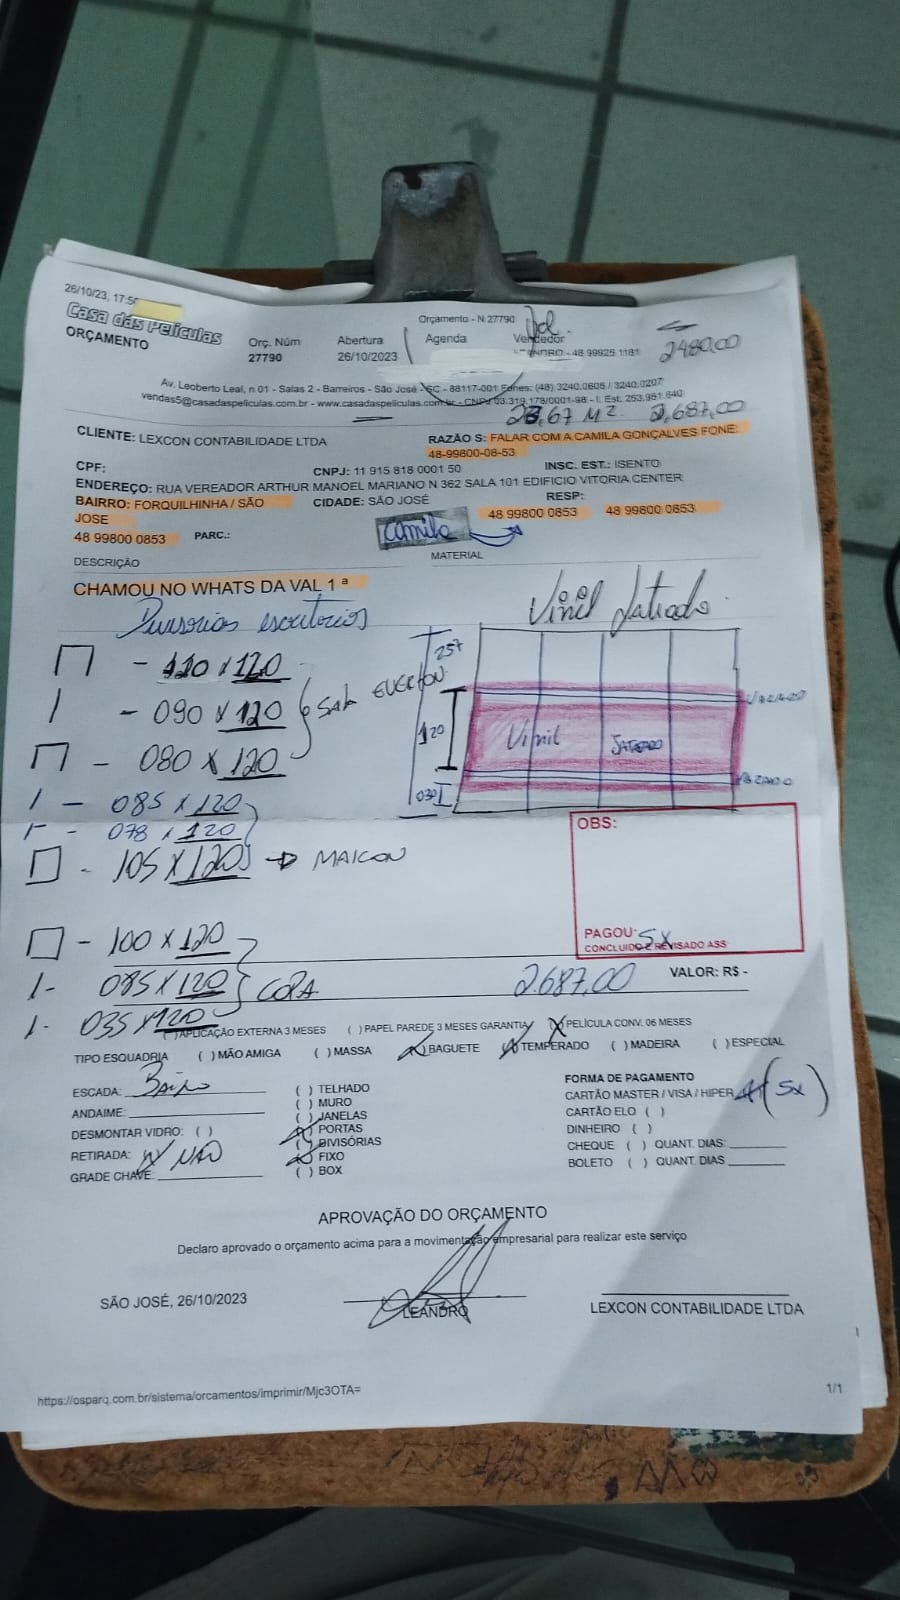 26/10/23, 17:5
Orçamento - N: 27790
Casa das Películas
ORÇAMENTO
Orç. Núm
27790
Abertura
26/10/2023
Agenda
Vendedor
48 99925 1181
2480,00
Av. Leoberto Leal, n 01 - Salas 2 - Barreiros - São José - SC - 88117-001 Fones: (48) 3240.0605 / 3240.0207
vendas5@casadaspeliculas.com.br - www.casadaspeliculas.com.br - CNPJ 03.319.178/0001-98 - I. Est. 253.951.640
23,67 M². 2,687,00
CLIENTE: LEXCON CONTABILIDADE LTDA
RAZÃO S: FALAR COM A CAMILA GONÇALVES FONE:
48-99800-08-53
CPF:
CNPJ: 11 915 818 0001 50
INSC. EST.: ISENTO
ENDEREÇO: RUA VEREADOR ARTHUR MANOEL MARIANO N 362 SALA 101 EDIFICIO VITORIA CENTER
BAIRRO: FORQUILHINHA / SÃO
JOSE
CIDADE: SÃO JOSÉ
RESP:
48 99800 0853 48 99800 0853
48 99800 0853 PARC.:
Camila
DESCRIÇÃO
MATERIAL
CHAMOU NO WHATS DA VAL 1 ª
Divisorias escritorios
Vinil Jateado
- 110 x 120
- 090 x 120
SALA EVERTON
- 080 x 120
1 - 085 x 120
- 078 x 120
- 105 x 120 → MAICON
257
120
030
VAZADO
Vinil JATEADO
VAZADO
OBS:
PAGOU: 5X
CONCLUIDO E REVISADO ASS
- 100 x 120
1- 085 x 120 COPA
1- 035 x 120
2687,00
VALOR: R$ -
( ) APLICAÇÃO EXTERNA 3 MESES ( ) PAPEL PAREDE 3 MESES GARANTIA (X) PELÍCULA CONV. 06 MESES
TIPO ESQUADRIA ( ) MÃO AMIGA ( ) MASSA (X) BAGUETE (X) TEMPERADO ( ) MADEIRA ( ) ESPECIAL
ESCADA: Baixo
ANDAIME:
DESMONTAR VIDRO: ( )
RETIRADA: NÃO
GRADE CHAVE:
( ) TELHADO
( ) MURO
( ) JANELAS
(X) PORTAS
( ) DIVISÓRIAS
(X) FIXO
( ) BOX
FORMA DE PAGAMENTO
CARTÃO MASTER / VISA / HIPER (X) (5x)
CARTÃO ELO ( )
DINHEIRO ( )
CHEQUE ( ) QUANT. DIAS:
BOLETO ( ) QUANT. DIAS
APROVAÇÃO DO ORÇAMENTO
Declaro aprovado o orçamento acima para a movimentação empresarial para realizar este serviço
SÃO JOSÉ, 26/10/2023
LEANDRO
LEXCON CONTABILIDADE LTDA
https://osparq.com.br/sistema/orcamentos/imprimir/Mjc3OTA=
1/1